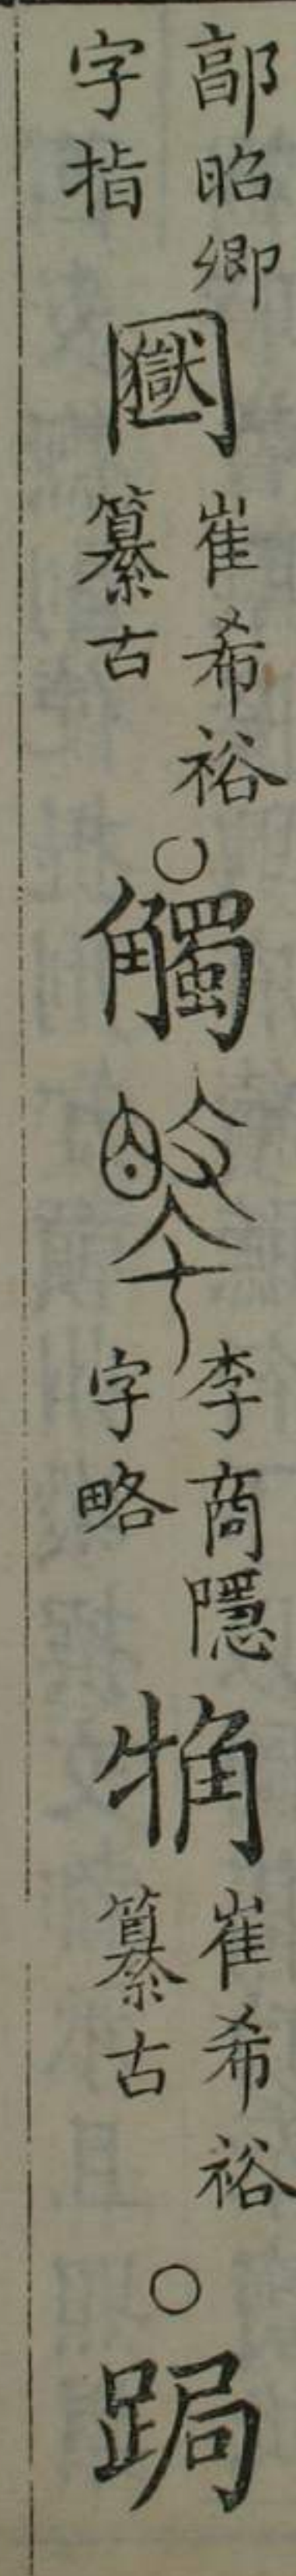 郭昭卿
字指
崔希裕
纂古
○觸
李商隱
字略
𤙜
崔希裕
纂古
○跼